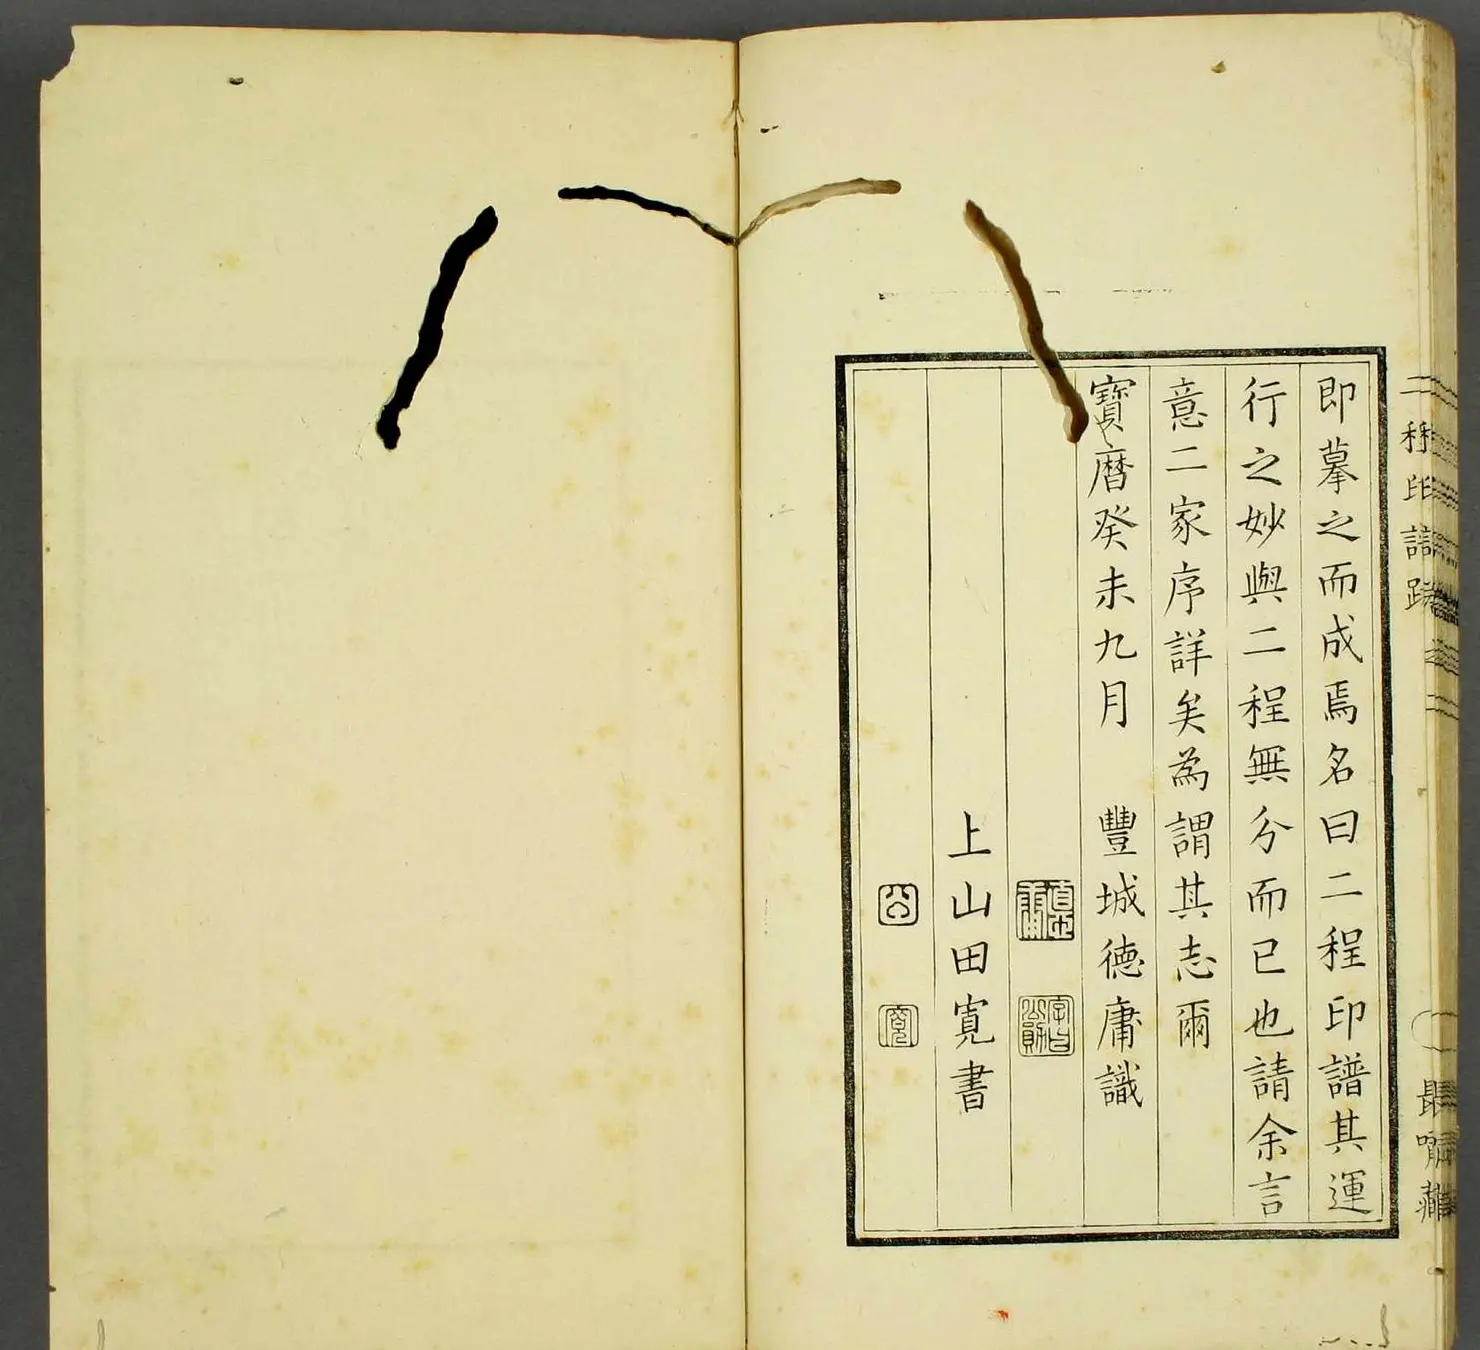 即摹之而成焉名曰二程印譜其運
行之妙與二程無分而已也請余言
意二家序詳矣為謂其志爾
寶暦癸未九月 豐城德庸識
上山田寛書
公
寛
二程印譜跋